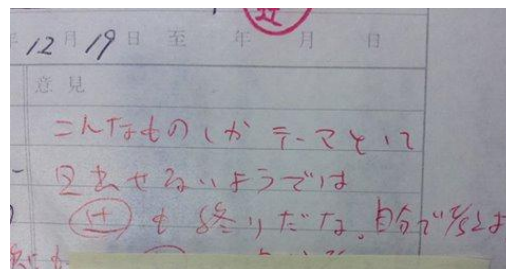 年12月19日 至 年 月 日
意見
こんなものしかテーマとして
見出せないようでは
も終りだな。自分で